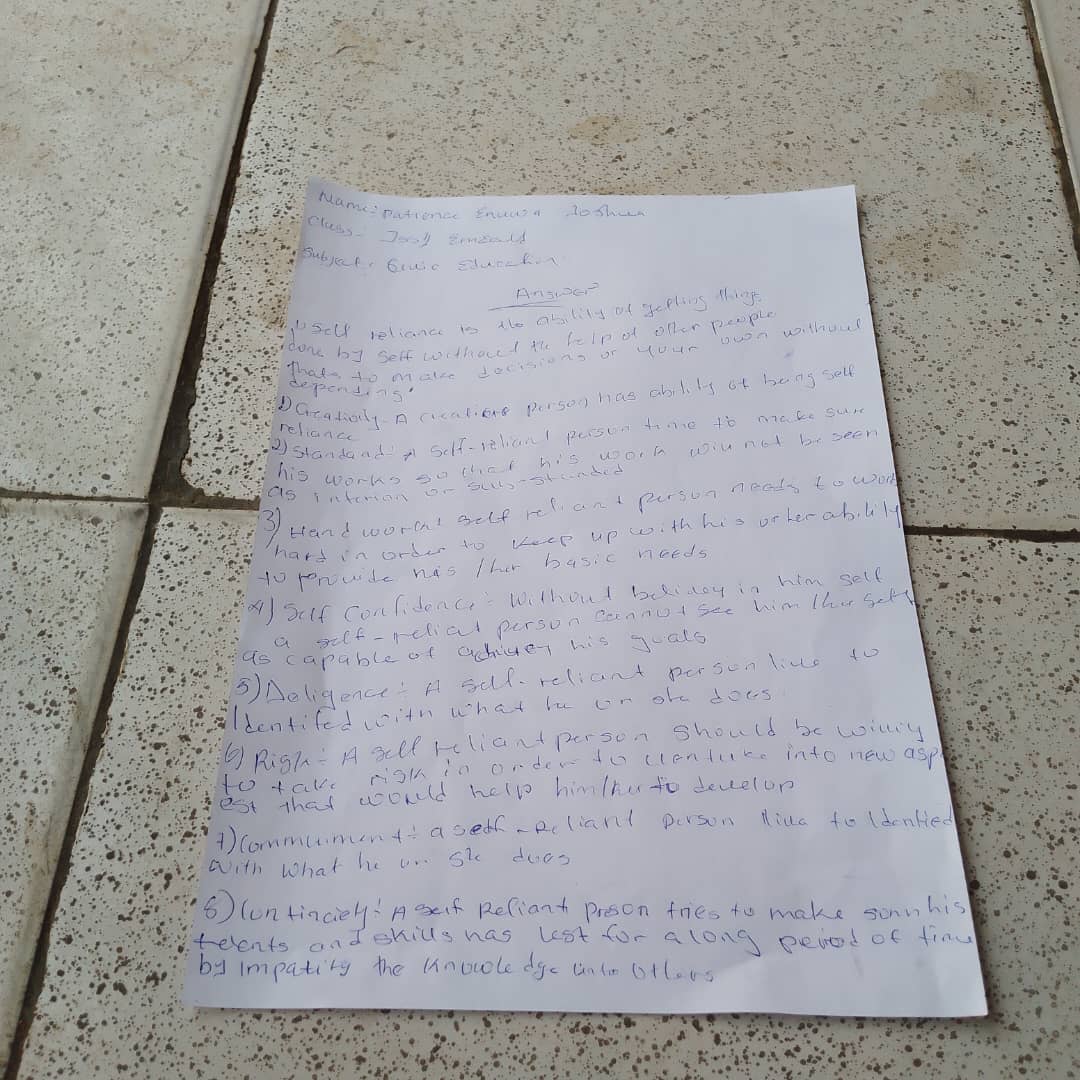 Name: Patience Enuwa Joshua
Class:
Subject: Civic Education
Answer
1) Self reliance is the ability of getting things
done by self without the help of other people
thats to make decisions or your own without
depending.
1) Creativity - A creative person has ability of being self
reliance
2) Standand: A self-reliant person time to make sure
his works so that his work will not be seen
as inferior or sub-standed
3) Hand work: self reliant person needs to work
hard in order to keep up with his or her ability
to provide his / her basic needs
4) Self Confidence: Without believey in him self
a self-reliant person cannot see him/her self
as capable of achivey his goals
5) Deligence: A self-reliant person live to
Identifed with what he or she does.
6) Righ: A self reliant person should be willing
to take risk in order to venture into new asp
est that would help him/her to develop
7) Commument: a self-reliant person live to Identied
with what he or she does
8) Continciely: A self Reliant preson tries to make sunn his
telents and skills has lest for a long period of time
by Impatity the Knowledge unto Others